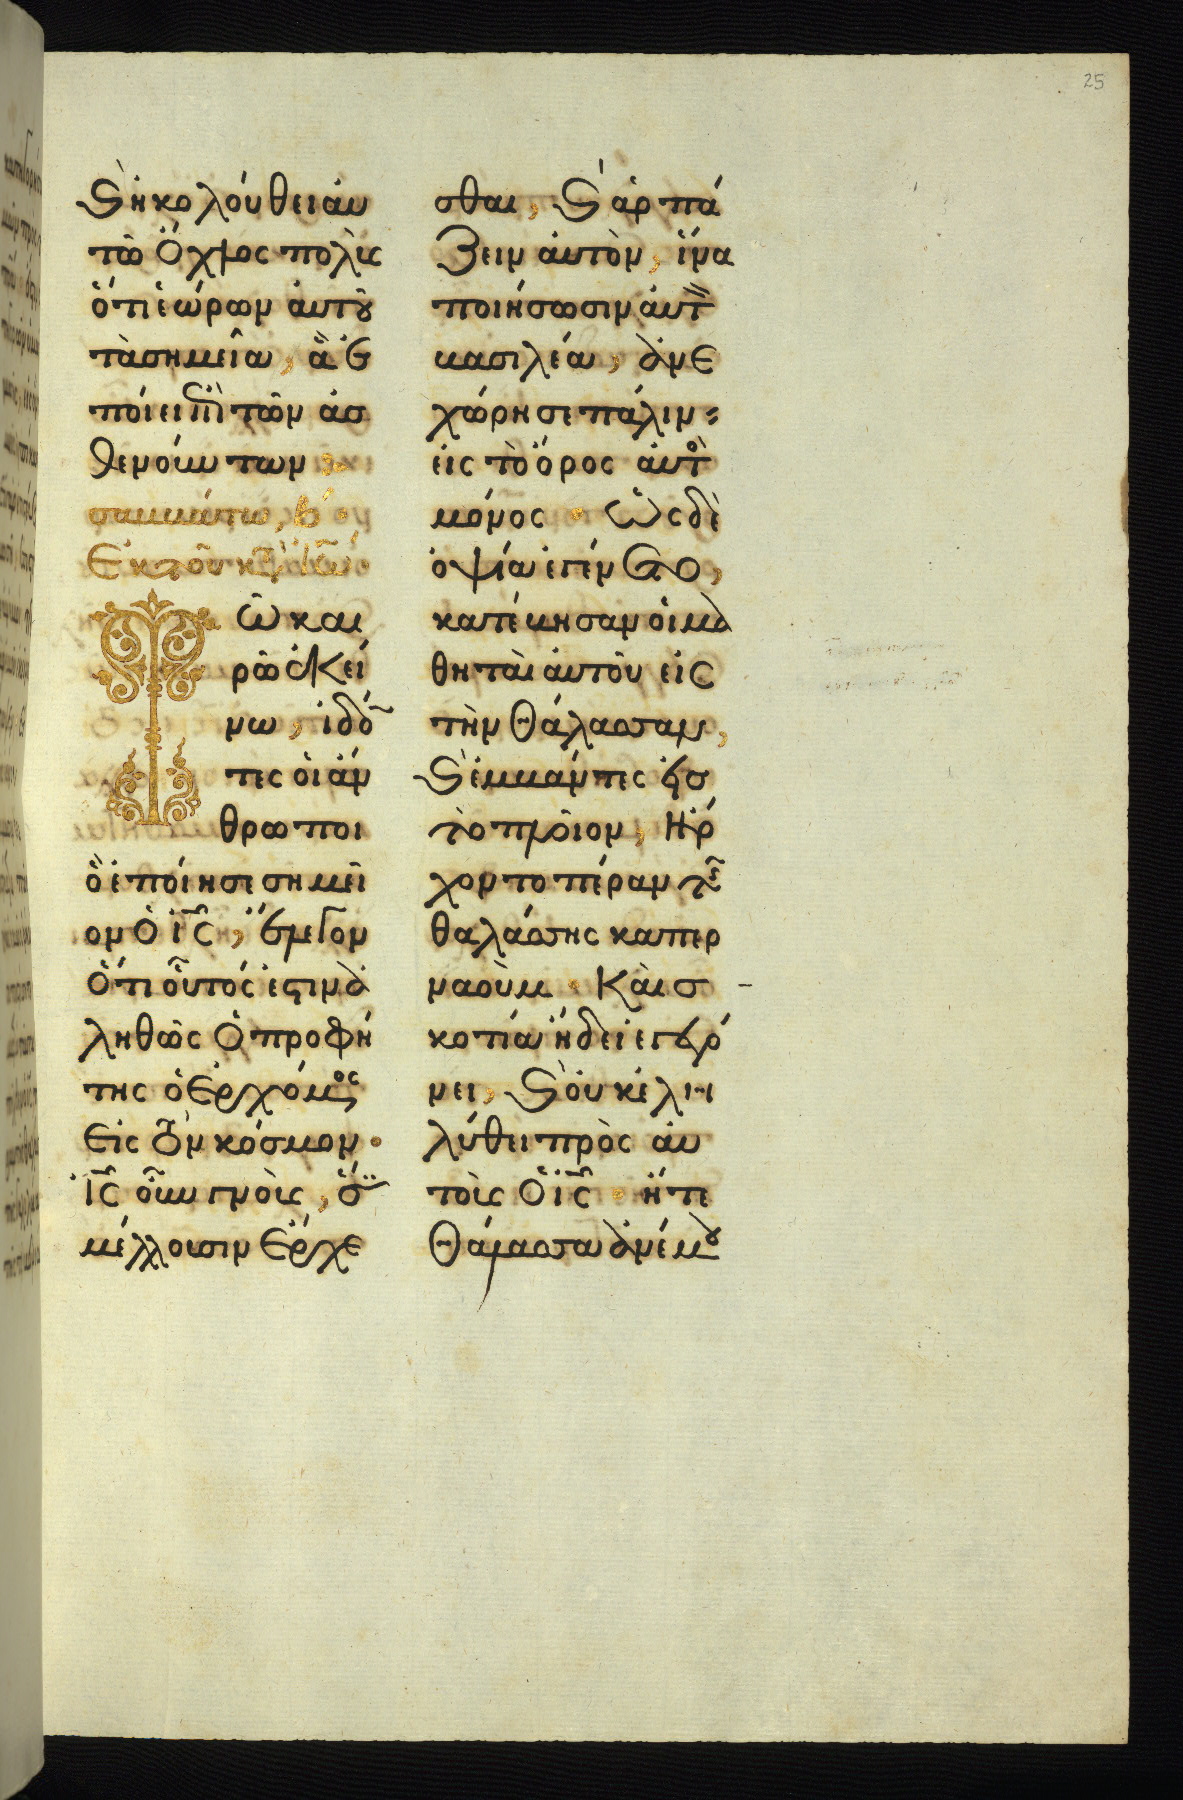 25
ϗ ἠκολούθει ἀυ
τῶ ὄχλος πολὺς
ὅτι ἑώρων ἀυτοῦ
τὰ σημεῖα, ἃ ἐ
ποίει ἐπὶ τῶν ἀσ
θενούντων
σαββάτω, β´
Ἐκ τοῦ κ(α)τ(ὰ) Ἰω
Τῶ και
ρῶ ἐκεί
νω, ἰδό
τες οἱ ἄν
θρωποι
ὃ ἐποίησε σημεῖ
ον ὁ ἰ̅ς̅, ἔλεγον
ὅτι οὗτός ἐστιν ἀ
ληθῶς ὁ προφή
της ὁ ἐρχόμ(εν)ος
εἰς τὸν κόσμον.
ἰ̅ς̅ οὖν γνοὺς, ὅτι
μέλλουσιν ἔρχε
σθαι, ϗ ἁρπά
ζειν ἀυτὸν, ἵνα
ποιήσωσιν ἀυτ
βασιλέα, ἀνε
χώρησε πάλιν
εἰς τὸ ὄρος ἀυτὸ
μόνος. Ὡς δὲ
ὀψία ἐγένετο,
κατέβησαν οἱ μα
θηταὶ ἀυτοῦ εἰς
τὴν θάλασσαν,
ϗ ἐμβάντες εἰσ
τὸ πλοῖον, ἤρ
χοντο πέραν τῆς
θαλάσσης καπερ
ναοὺμ. Καὶ σ
κοτία ἤδει ἐγεγό
νει, ϗ ὀυκ ἐλη
λύθει πρὸς ἀυ
τοὺς ὁ ἰ̅ς̅. ἥ τε
θάλασσα ἀνέμου